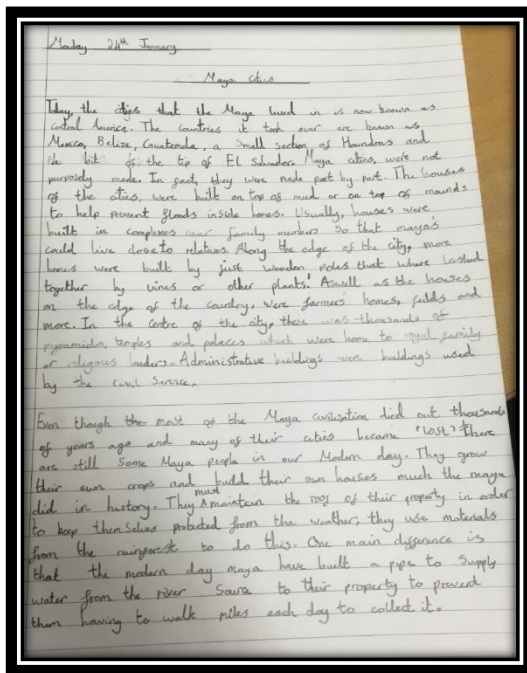 Monday 24th January
Maya cities
Today, the cities that the Maya lived in is now known as
central America. The countries it took over are known as
Mexico, Belize, Guatemala, a small section of Houndras and
the bit of the tip of El Salvador. Maya cities, were not
purposly made. In fact, they were made part by part. The houses
of the cities, were built on top of mud or on top of mounds
to help prevent floods inside homes. Usually, houses were
built in complexes near family members so that maya's
could live close to relatives. Along the edge of the city, more
homes were built by just wooden poles that where lashed
together by vines or other plants! Aswell as the houses
on the edge of the country, were farmers' homes, fields and
more. In the centre of the city, there was thousands of
pyramids, temples and palaces which were home to royal family
or religous leaders. Administrative buildings were buildings used
by the civil service.
Even though the most of the Maya civilisation died out thousands
of years ago and many of their cities became "lost" there
are still some Maya people in our Modern day. They grow
their own crops and build their own houses much the maya
did in history. They must maintain the roof of their property in order
to keep themselves protected from the weather, they use materials
from the rainforest to do this. One main difference is
that the modern day maya have built a pipe to supply
water from the river source to their property to prevent
them having to walk miles each day to collect it.